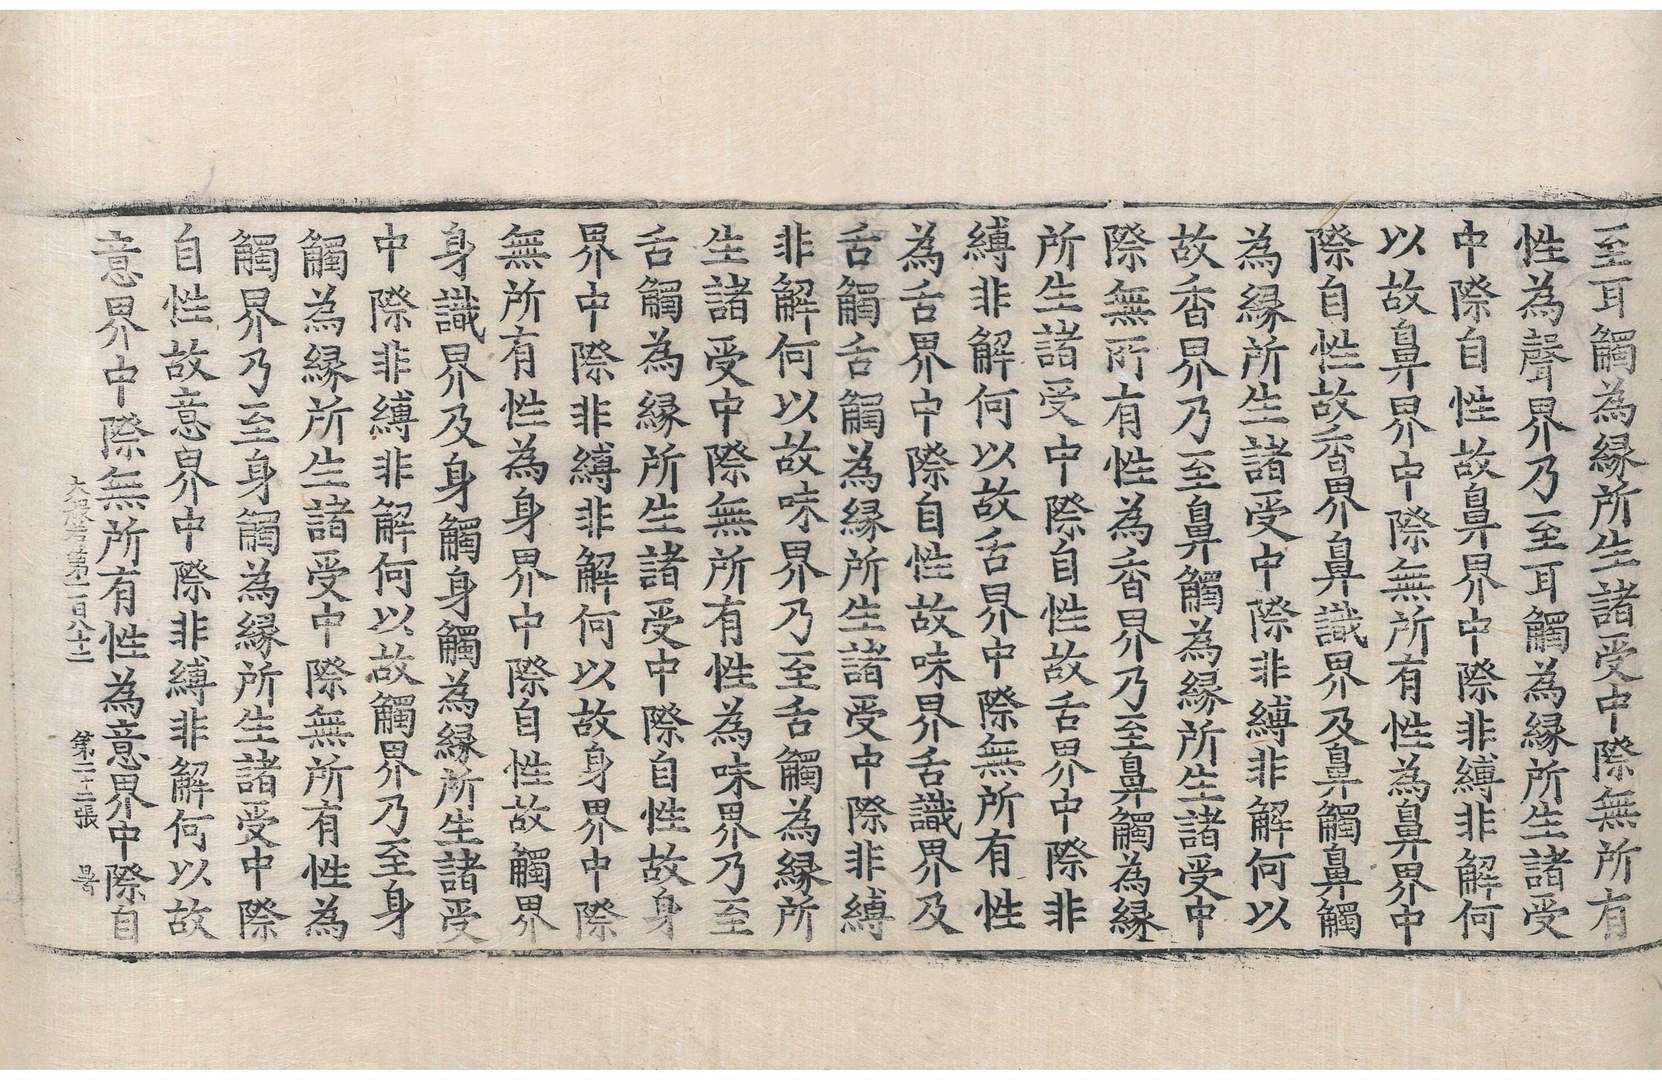 至耳觸為縁所生諸受中際無所有
性為聲界乃至耳觸為縁所生諸受
中際自性故鼻界中際非縛非解何
以故鼻界中際無所有性為鼻界中
際自性故香界鼻識界及鼻觸鼻觸
為縁所生諸受中際非縛非解何以
故香界乃至鼻觸為縁所生諸受中
際無所有性為香界乃至鼻觸為縁
所生諸受中際自性故舌界中際非
縛非解何以故舌界中際無所有性
為舌界中際自性故味界舌識界及
舌觸舌觸為縁所生諸受中際非縛
非解何以故味界乃至舌觸為縁所
生諸受中際無所有性為味界乃至
舌觸為縁所生諸受中際自性故身
界中際非縛非解何以故身界中際
無所有性為身界中際自性故觸界
身識界及身觸身觸為縁所生諸受
中際非縛非解何以故觸界乃至身
觸為縁所生諸受中際無所有性為
觸界乃至身觸為縁所生諸受中際
自性故意界中際非縛非解何以故
意界中際無所有性為意界中際自
大般若第一百八十二 第二十二張 暑